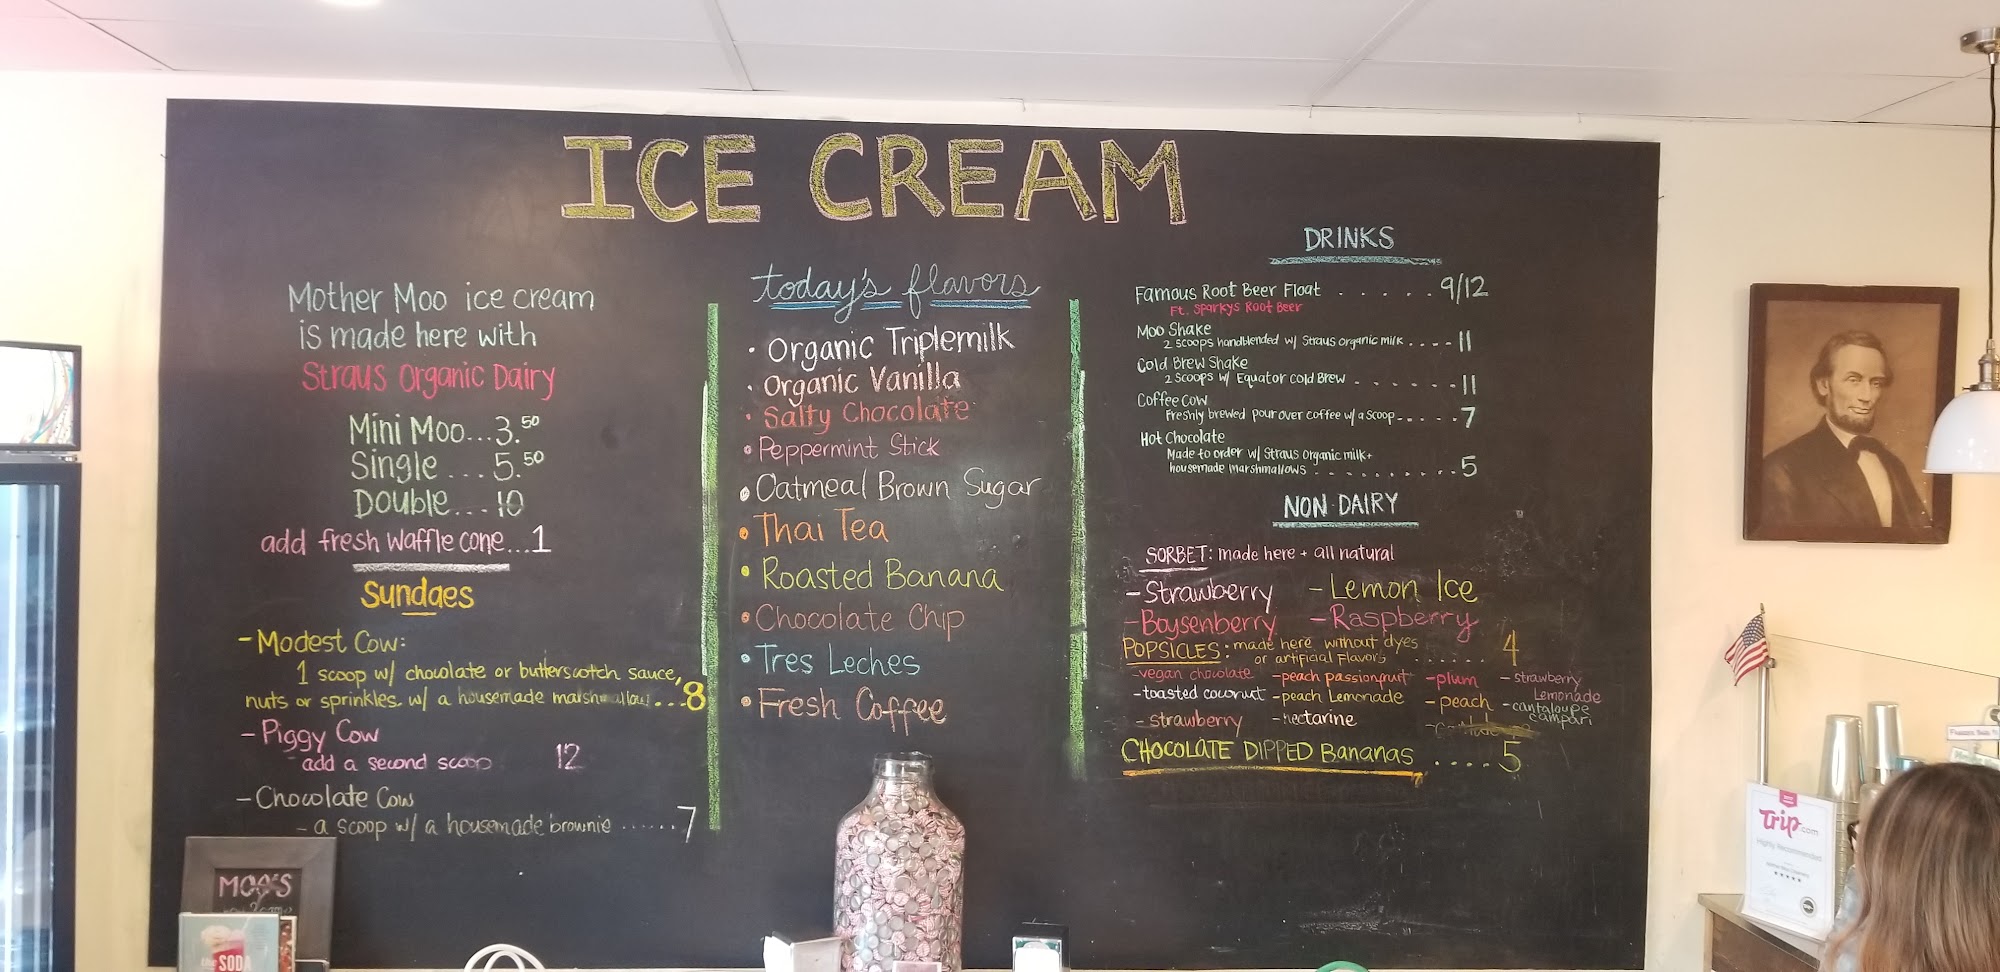 ICE CREAM
Mother Moo ice cream
is made here with
Straus Organic Dairy
Mini Moo...3.50
Single ....5.50
Double...10
add fresh waffle cone...1
Sundaes
- Modest Cow:
1 scoop w/ chocolate or butterscotch sauce,
nuts or sprinkles. w/ a housemade marshmallow! ...8
- Piggy Cow
add a second scoop 12
- Chocolate Cow
- a scoop w/ a housemade brownie ......7
today's flavors
• Organic Triplemilk
• Organic Vanilla
• Salty Chocolate
• Peppermint Stick
• Oatmeal Brown Sugar
• Thai Tea
• Roasted Banana
• Chocolate Chip
• Tres Leches
• Fresh Coffee
DRINKS
Famous Root Beer Float . . . . . . 9/12
Ft. Sparkys Root Beer
Moo Shake
2 scoops handblended w/ Straus organic milk . . . . 11
Cold Brew Shake
2 scoops w/ Equator cold Brew . . . . . . . 11
Coffee Cow
Freshly brewed pour over coffee w/ a scoop . . . . . 7
Hot Chocolate
Made to order w/ Straus organic milk +
housemade marshmallows . . . . . . . . . . 5
NON-DAIRY
SORBET: made here + all natural
- Strawberry - Lemon Ice
- Boysenberry - Raspberry
POPSICLES: made here without dyes
or artificial flavors . . . . . . 4
- vegan chocolate - peach passionfruit - plum - strawberry Lemonade
- toasted coconut - peach Lemonade - peach - cantaloupe campari
- strawberry - nectarine
CHOCOLATE DIPPED Bananas . . . . 5
MOO'S
the SODA
Trip.com
Highly Recommended